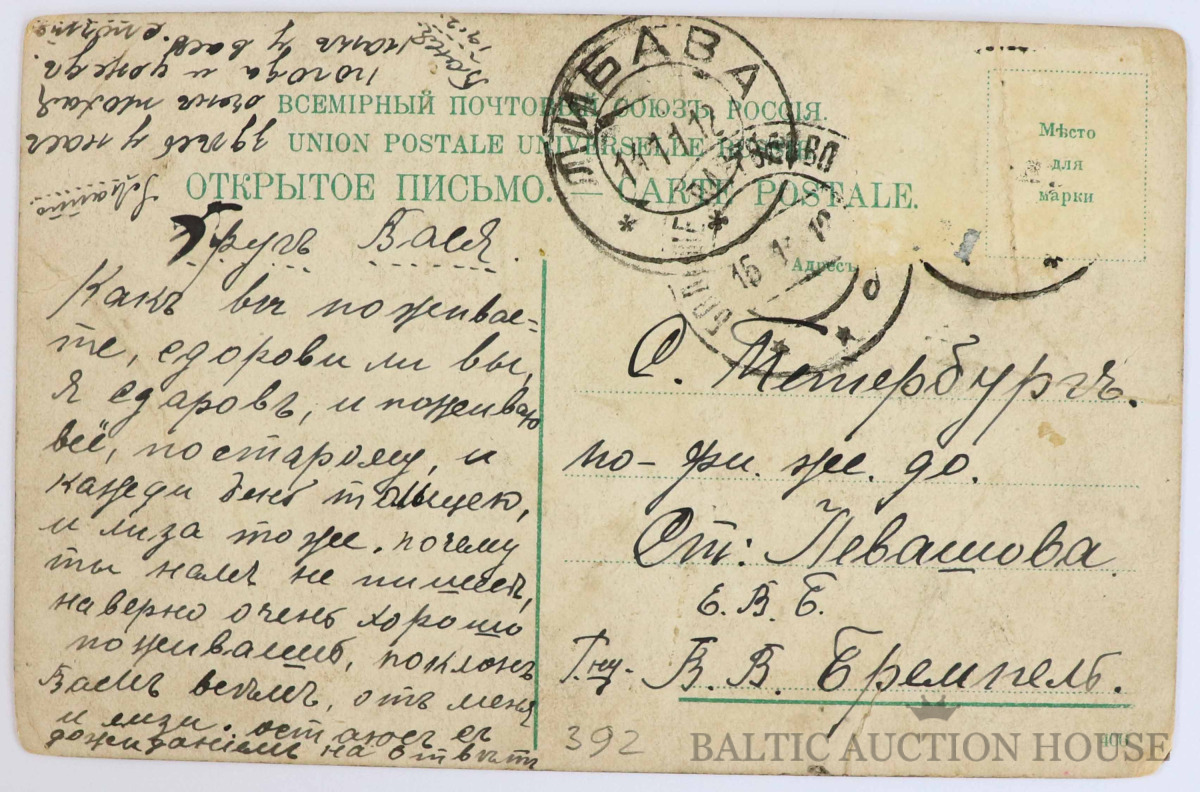 ВСЕМІРНЫЙ ПОЧТОВЫЙ СОЮЗЪ. РОССІЯ.
UNION POSTALE UNIVERSELLE RUSSIE
ОТКРЫТОЕ ПИСЬМО. — CARTE POSTALE.
Мѣсто
для
марки
Адресъ
ЛИБАВА
14 11 12
Другъ Вася.
Какъ вы поживае=
те, здорови ли вы,
я здаровъ, и поживаю
всё, по старому, и
кажеди день
и лиза тоже. почему
ты намъ не пишешь,
наверно очень хорошо
поживаешь, поклонъ
Вамъ всемъ, отъ меня
и лизи. остаюсь съ
дожиданіемъ на ответъ
здесь у насъ
очень плохая
погода и дождь
какъ у васъ
С. Петербургъ.
по-фи. же. до.
Ст: Левашова
Е. В. Б.
В. В. Бремпель.
392
BALTIC AUCTION HOUSE